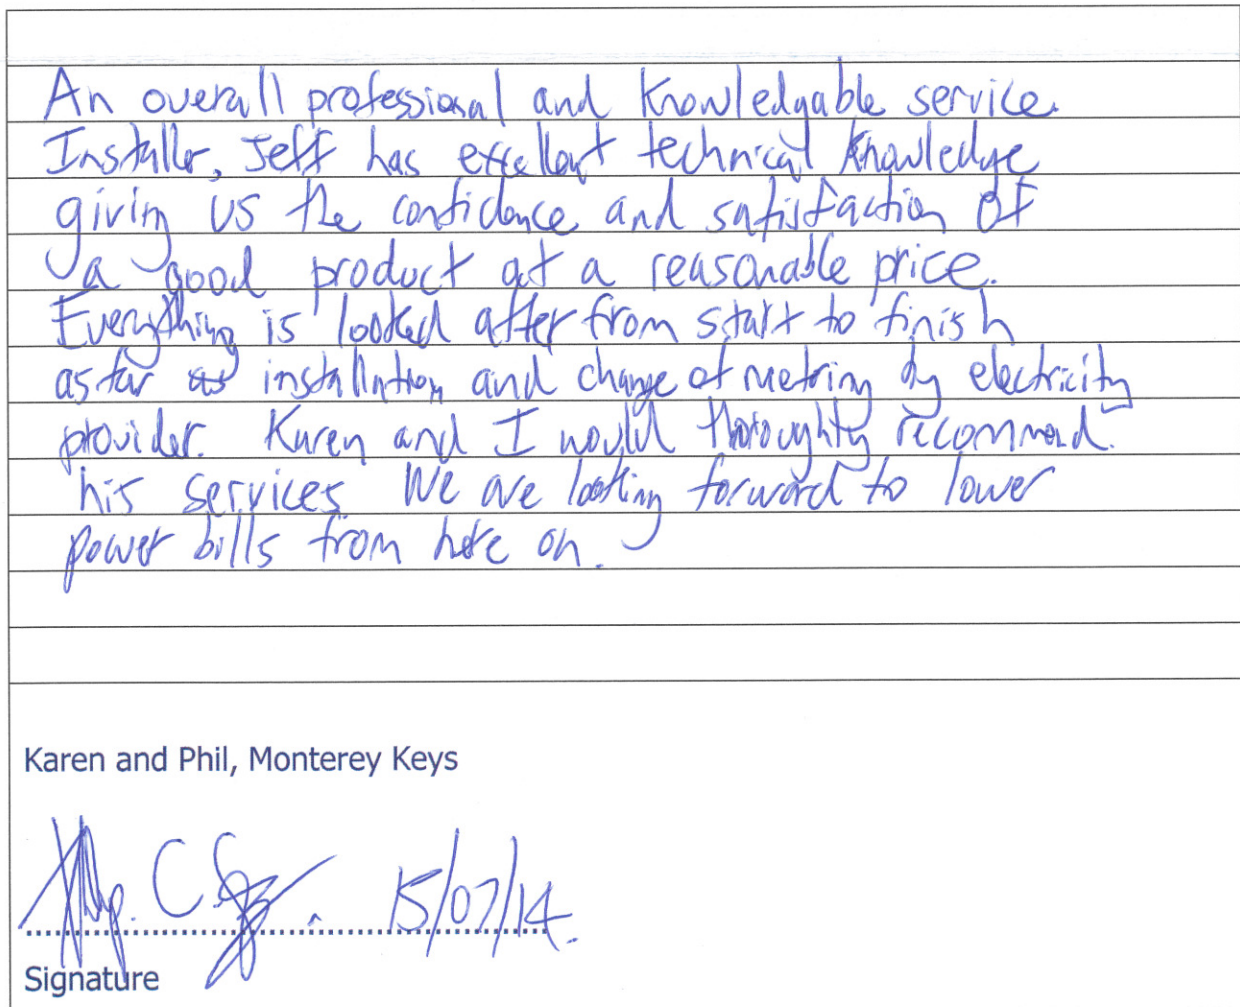 An overall professional and knowledgable service.
Installer, Jeff has excellent technical knowledge
giving us the confidence and satisfaction of
a good product at a reasonable price.
Everything is looked after from start to finish
as far as installation and change of metring by electricity
provider. Karen and I would thoroughty recommend.
his services. We are looking forward to lower
power bills from here on.
Karen and Phil, Monterey Keys
15/07/14.
Signature